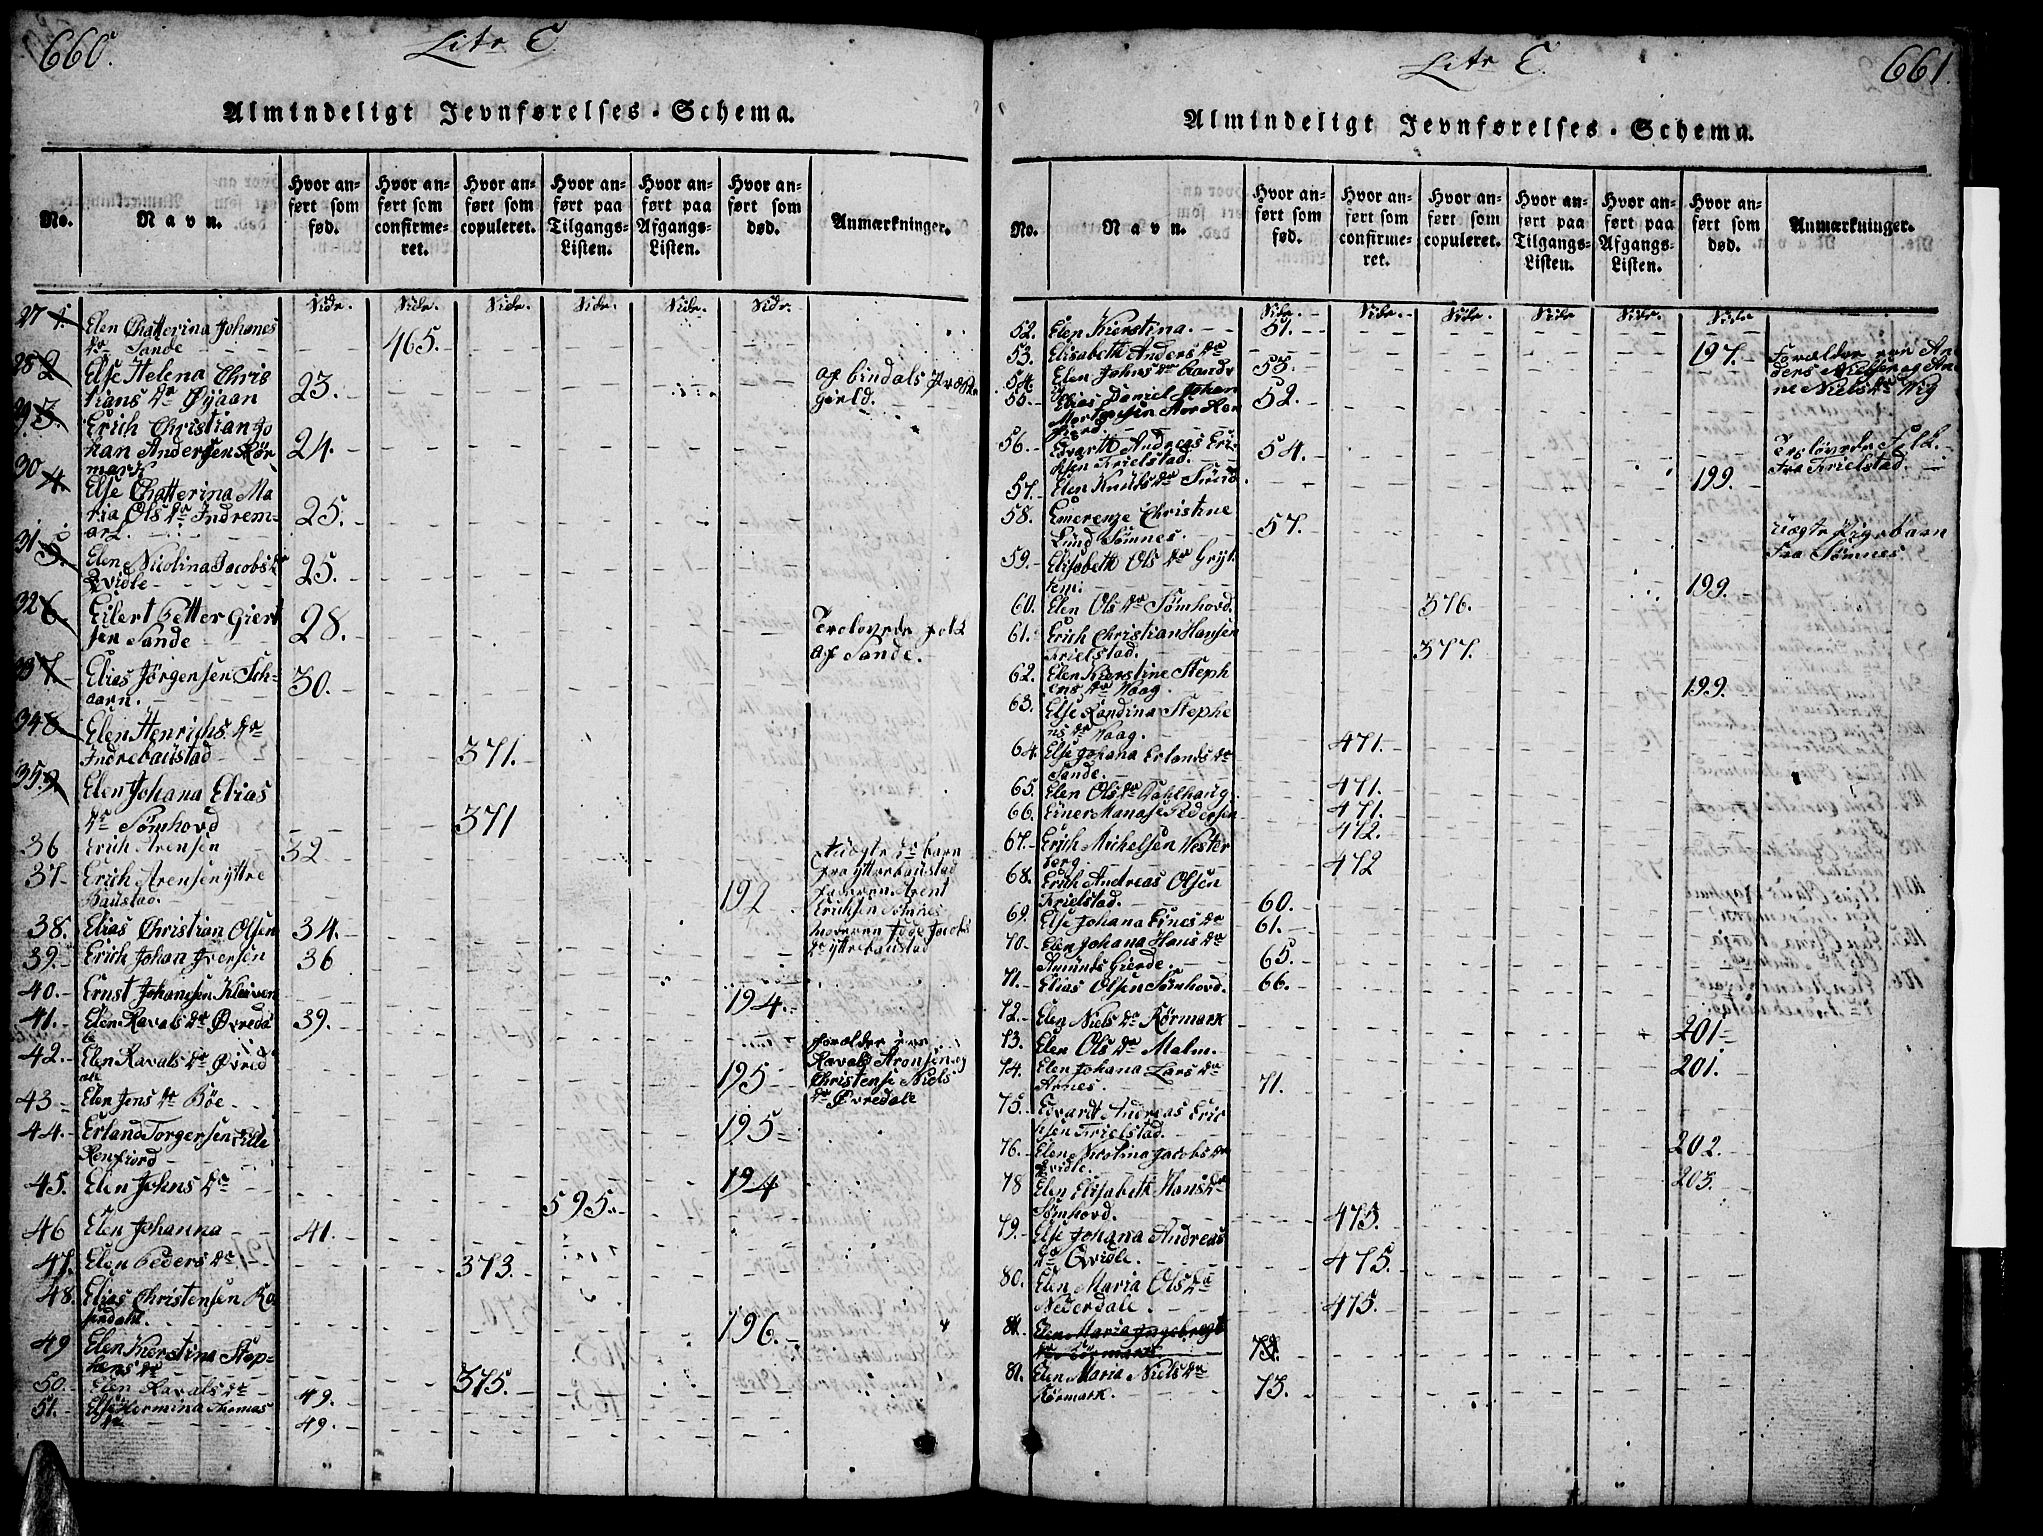 660.
Litr E
Almindeligt Jevnførelses-Schema.
No.
Navn.
Hvor an-
ført som
fød.
Hvor an-
ført som
confirme-
ret.
Hvor an-
ført som
copuleret.
Hvor an-
ført paa
Tilgangs-
Listen.
Hvor an-
ført paa
Afgangs-
Listen.
Hvor an-
ført som
død.
Anmærkninger.
Side. Side. Side. Side. Side. Side.
27 1. Elen Chatterina Johanes
dr Sande 465.
28 2 Else Helena Chris
tians dr Øyaan 23. af Bindals
Gield.
29 3. Erich Christian Jo
han Andersen Rör
mark 24.
30 4 Else Chatterina Ma
ria Ols dr Indrem-
ark. 25.
31 5. Elen Nicolina Jacobs dr
Qvidle 25.
32 6. Eilert Petter Giert
sen Sande 28. Trolovede folk
af Sande.
33 7. Elias Jörgensen Sch-
aarn. 30.
34 8. Elen Henrichs dr
Indrebaüstad 371.
35 9 Elen Johana Elias
dr Sömhovd 371
36 Erich Arensen 32 Uægte barn
fra yttrebaüstad
faderen Arent
Eriksen Sömnes
moderen Jacobs
dr yttrebaüstad
37- Erich Arensen yttre
Baüstad. 192
38. Elias Christian Olsen 34.
39.- Erich Johan Iversen 36
40.- Ernst Johansen Kleiven 194.
41.- Elen Ravals dr Øvreda
le 39.
42.- Elen Ravals dr Øvred
ale 195 forælder ere
Ravals Aronsen og
Christense Niels
dr Øvredale
43- Elen Jens dr Böe 195-
44.- Erland Torgersen Lille
Renfiord 194
45. Elen Johns dr 595.
46 Elen Johanna 41.
47. Elen Peders dr 373.
48. Elias Christensen Ro
sendahl. 196.
49 Elen Kierstina Step-
hens dr 375.
50. Elen Ravals dr 49.
51. Else Hermina Thomas
dr 49.
661.
Litr E.
Almindeligt Jevnførelses-Schema.
No.
Navn.
Hvor an-
ført som
fød.
Hvor an-
ført som
confirme-
ret.
Hvor an-
ført som
copuleret.
Hvor an-
ført paa
Tilgangs-
Listen.
Hvor an-
ført paa
Afgangs-
Listen.
Hvor an-
ført som
død.
Anmærkninger.
Side. Side. Side. Side Side. Side
52. Elen Kierstina. 51.
53. Elisabeth Anders dr 197. Forælder ere An
ders Nielsen og An
ne Niels dr Vig
54. Elen Johns dr Sande 53.
55. Elias Daniel Johan
Mortensen Stor Ren
fiord. 52.
56. Edvarth Andreas Eri-
chsen Trielstad. 54. Trolovede Folk
fra Trielstad.
57.- Elen Knüts dr Sünd. 199.
58. Emerenze Christine
Lund Sömnes. 57. Uægte Pigebarn
fra Sömnes
59. Elisabeth Ols dr Gryt
tem. 199.
60. Elen Ols dr Sömhovd. 376.
61. Erich Christian Hansen
Trielstad. 377.
62. Elen Kierstine Steph
ens dr Vaag. 199.
63. Else Randina Stephe
ns dr Vaag. 471.
64. Else Johana Erlands dr
Sande. 471.
65. Elen Ols dr Dahlhaug. 471.
66. Einer Manase Pedersen 472.
67.- Erich Michelsen Vester
berg. 472
68. Erich Andreas Olsen
Trielstad. 60.
69. Else Johana Eines dr 61.
70. Elen Johana Hans dr
Amünds Gierde. 65.
71. Elias Olsen Sömhovd. 66.
72. Elen Niels dr Rörmark 201-
73. Elen Ols dr Malm. 201.
74. Elen Johana Lars dr
Arnes. 71.
75. Edvardt Andreas Eric
hsen Trielstad. 202.
76. Elen Nicolina Jacobs dr
Qvidle. 203.
78 Elen Elisabeth Hans dr
Sömhovd. 473.
79. Else Johana Andreas
dr Qvidle. 475.
80. Elen Maria Ols dr
Nederdale. 475.
81. Elen Maria Ingebregt
dr Rörmark. 73.
81. Elen Maria Niels dr
Rörmark. 73.